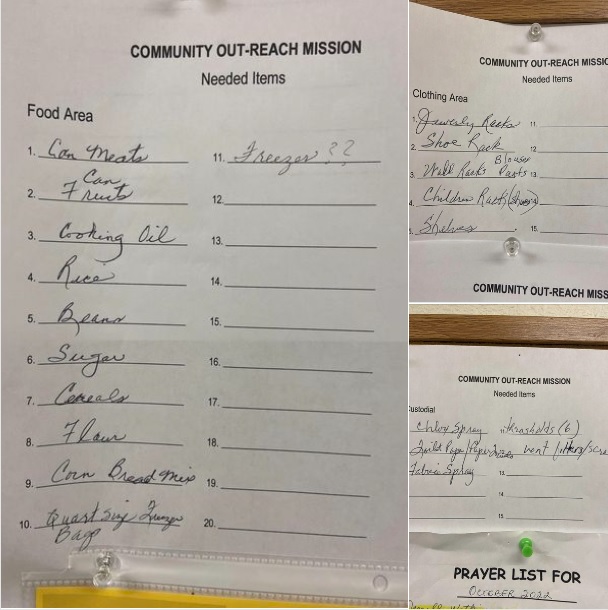 COMMUNITY OUT-REACH MISSION
Needed Items
Food Area
1. Can Meats
2. Can Fruits
3. Cooking Oil
4. Rice
5. Beans
6. Sugar
7. Cereals
8. Flour
9. Corn Bread Mix
10. Quart Size Freezer Bags
11. Freezer ??
12.
13.
14.
15.
16.
17.
18.
19.
20.
COMMUNITY OUT-REACH MISSIO
Needed Items
Clothing Area
1. Racks 11.
2. Shoe Rack 12
3. Wall Racks Blouses Pants 13
4. Children Racks
5. Shelves 15.
COMMUNITY OUT-REACH MISS
COMMUNITY OUT-REACH MISSION
Needed Items
Custodial
Spray thresholds (6)
Toilet Paper/Paper vent filters/
Fabric Spray 13.
14.
15.
PRAYER LIST FOR
OCTOBER 2022